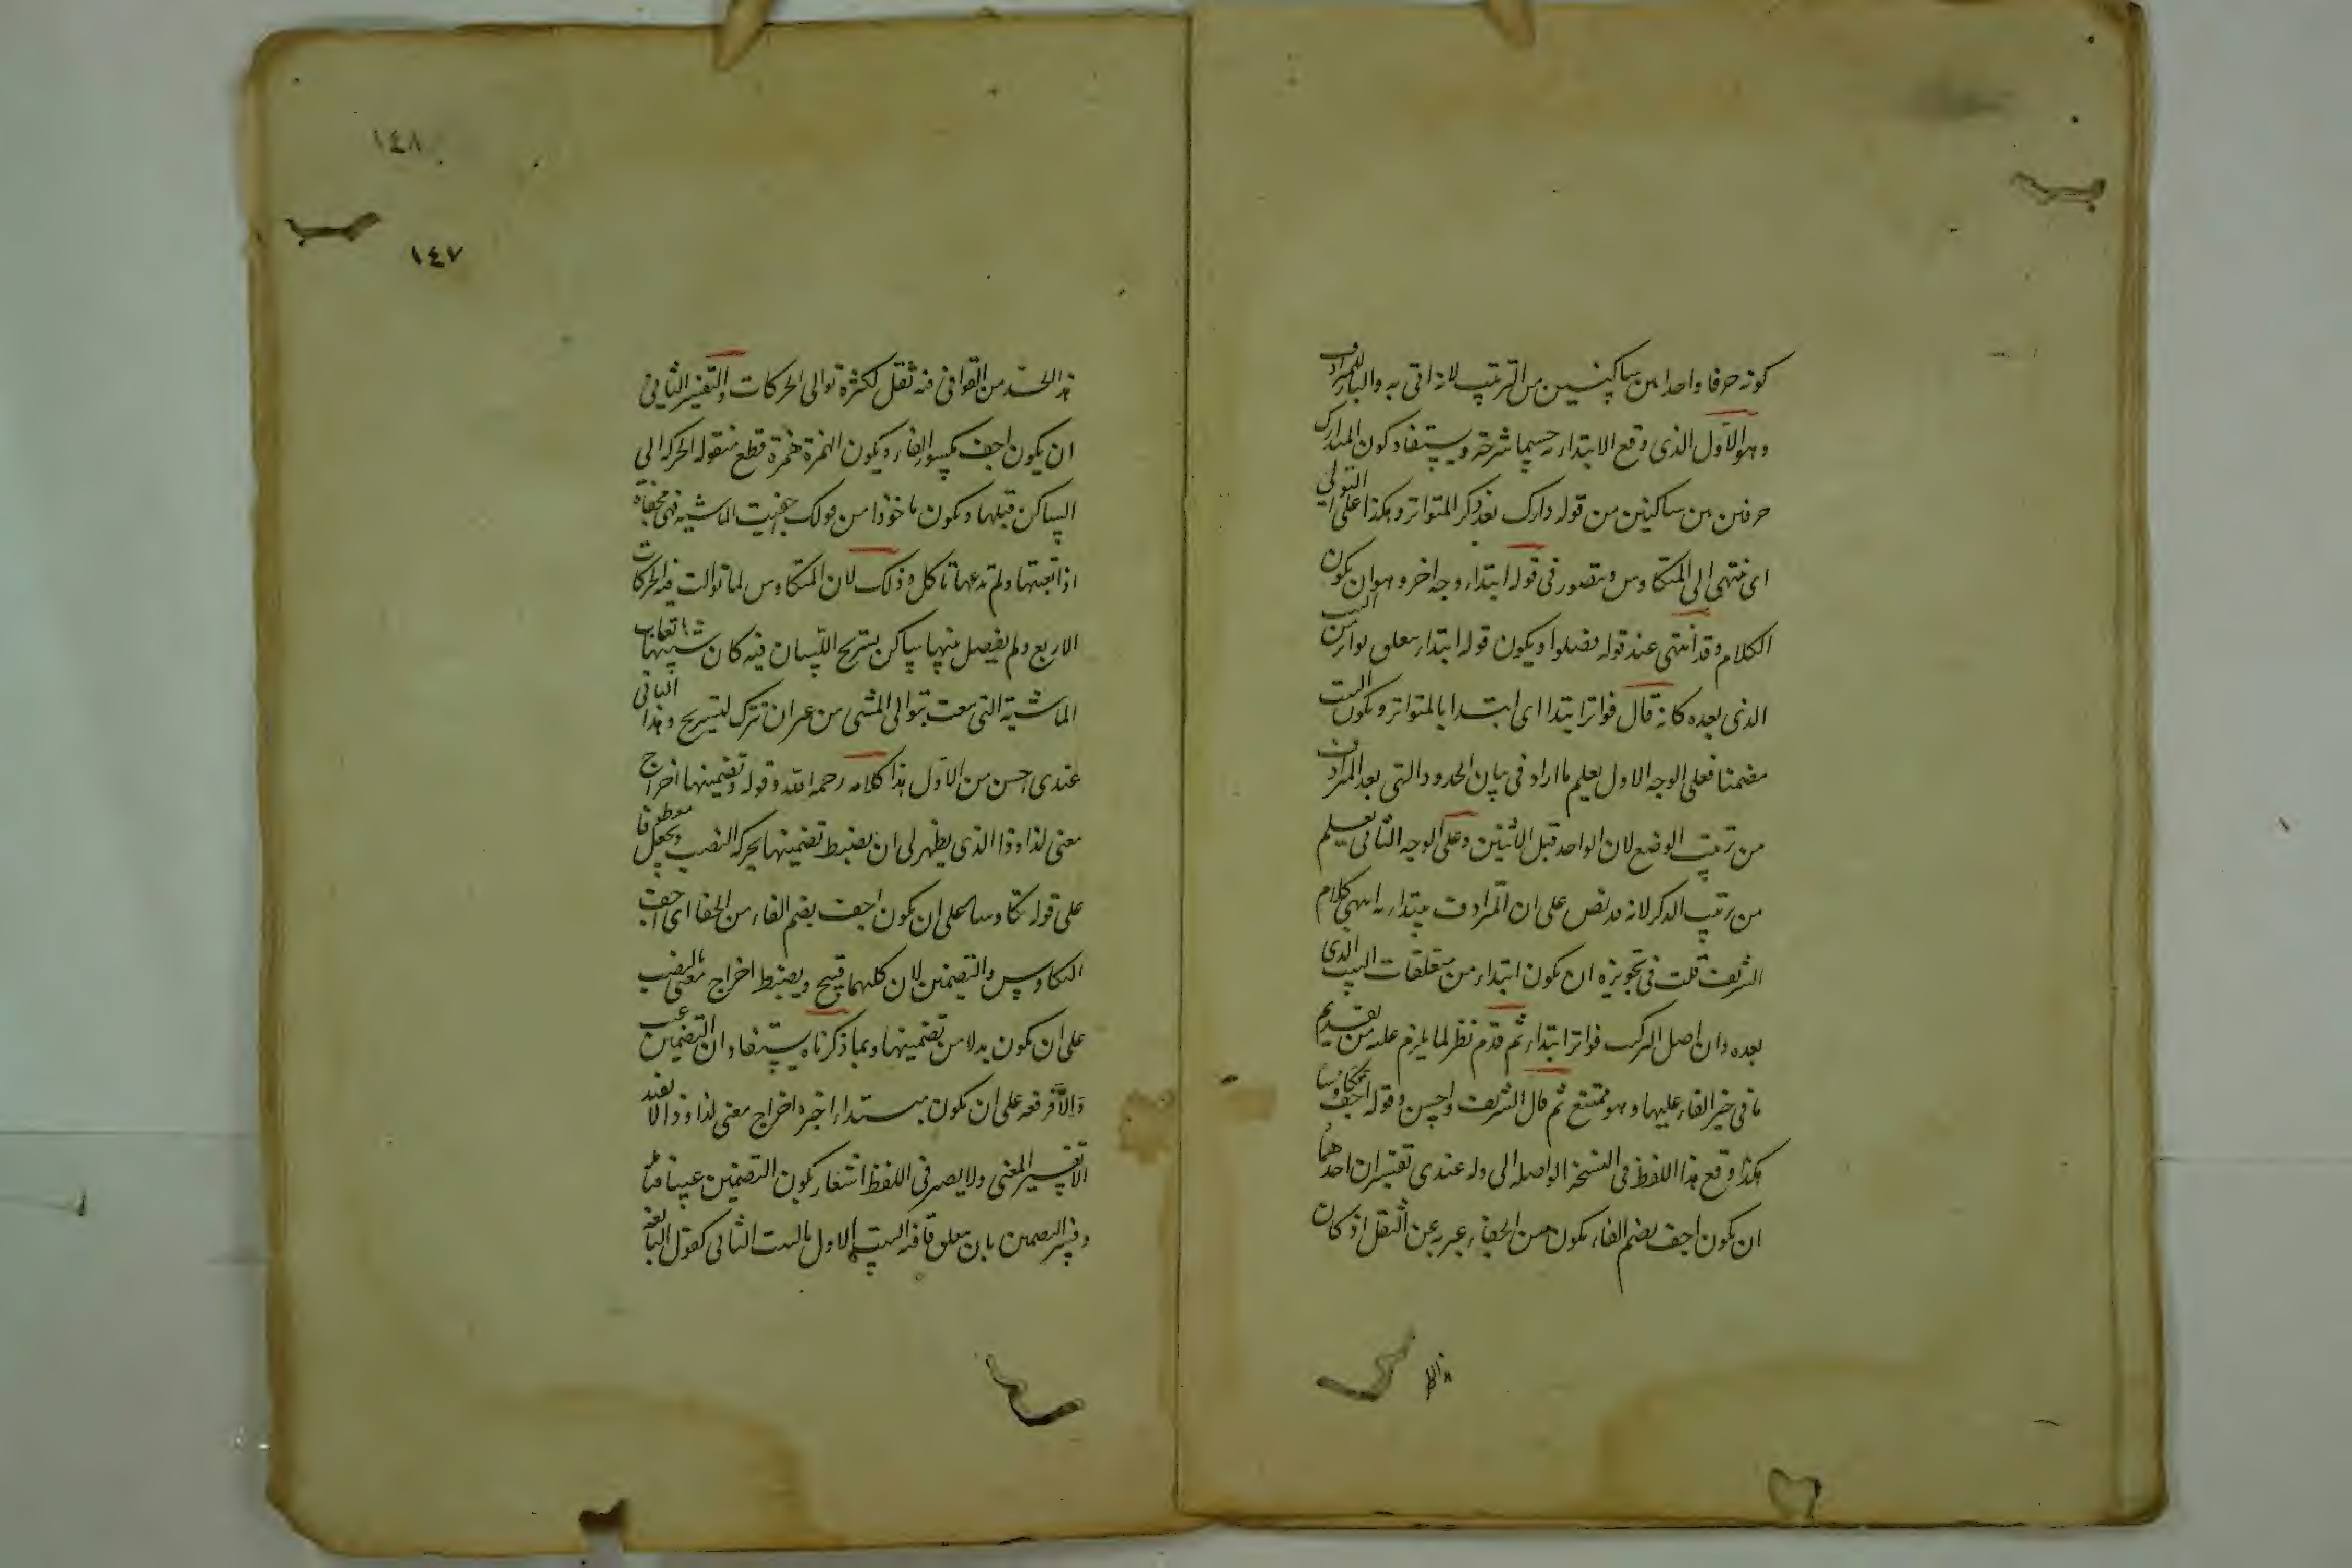 كونه حرفا واحدا بين ساكنين من الترتيب لانه اتى به والبا للمترادف
وهو الاول الذى وقع الابتداء به حسبما شرحته ويستفاد كون المتدارك
حرفين بين ساكنين من قوله دارك بعد ذكر المتواتر وهكذا على التوالي
اى ينتهى الى المتكاوس ويتصور فى قوله ابتداء وجه اخر وهو ان يكون
الكلام وقد انتهى عند قوله فصلوا ويكون قوله ابتداء يتعلق بواتر من البيت
الذى بعده كانه قال فواتر ابتدا اى ابتدا بالمتواتر ويكون البيت
مضمنا فعلى الوجه الاول يعلم ما اراد فى بيان الحدود التى بعد المترادف
من ترتيب الوضع لان الواحد قبل الاثنين وعلى الوجه الثانى يعلم
من ترتيب الذكر لانه قد نص على ان المترادف يبتداء به انتهى كلام
الشريف قلت فى تجويزه ان يكون ابتداء من متعلقات البيت الذى
بعده وان اصل التركيب فواتر ابتداء ثم قدم نظر لما يلزم عليه من تقديم
ما فى حيز الفاء عليها وهو ممتنع ثم قال الشريف واحسن وقوله اجف تكاوسا
هكذا وقع هذا اللفظ فى النسخة الواصله الى وله عندى تفسيران احدهما
ان يكون اجف بضم الفاء يكون من الجفاء عبر به عن الثقل اذ كان
هذا الحد من القوافى فيه ثقل لكثرة توالى الحركات والتفسير الثانى
ان يكون اجف بكسر الفاء ويكون الهمزة همزة قطع منقوله الحركه الى
الساكن قبلها ويكون ماخوذا من قولك اجفيت الماشيه فهى مجفاة
اذا اتعبتها ولم تدعها تاكل وذلك لان المتكاوس لما توالت فيه الحركات
الاربع ولم يفصل بينها بساكن يستريح اللسان فيه كان شبيها باتعاب
الماشية التى تعبت بتوالى المشى من غير ان تترك لتستريح وهذا الثانى
عندى احسن من الاول هذا كلامه رحمه الله وقوله وتضمينها اخراج
معنى لذا وذا الذى يظهر لى ان يضبط تضمينها بحركة النصب ويجعل معطوفا
على قوله تكاوسا على ان يكون اجف بضم الفاء من الجفا اى اجف
التكاوس والتضمين لان كليهما قبيح ويضبط اخراج معنى بالنصب
على ان يكون بدلا من تضمينها وبما ذكرناه يستفاد ان التضمين عيب
والا فرفعه على ان يكون مبتداء اخبره اخراج معنى لذا وذا لا يفيد
الا تفسير المعنى ولا يصير فى اللفظ اشعار بكون التضمين عيبا
وفسر التضمين بان يتعلق قافية البيت الاول بالبيت الثانى كقول النابغه
١٤٨
١٤٧